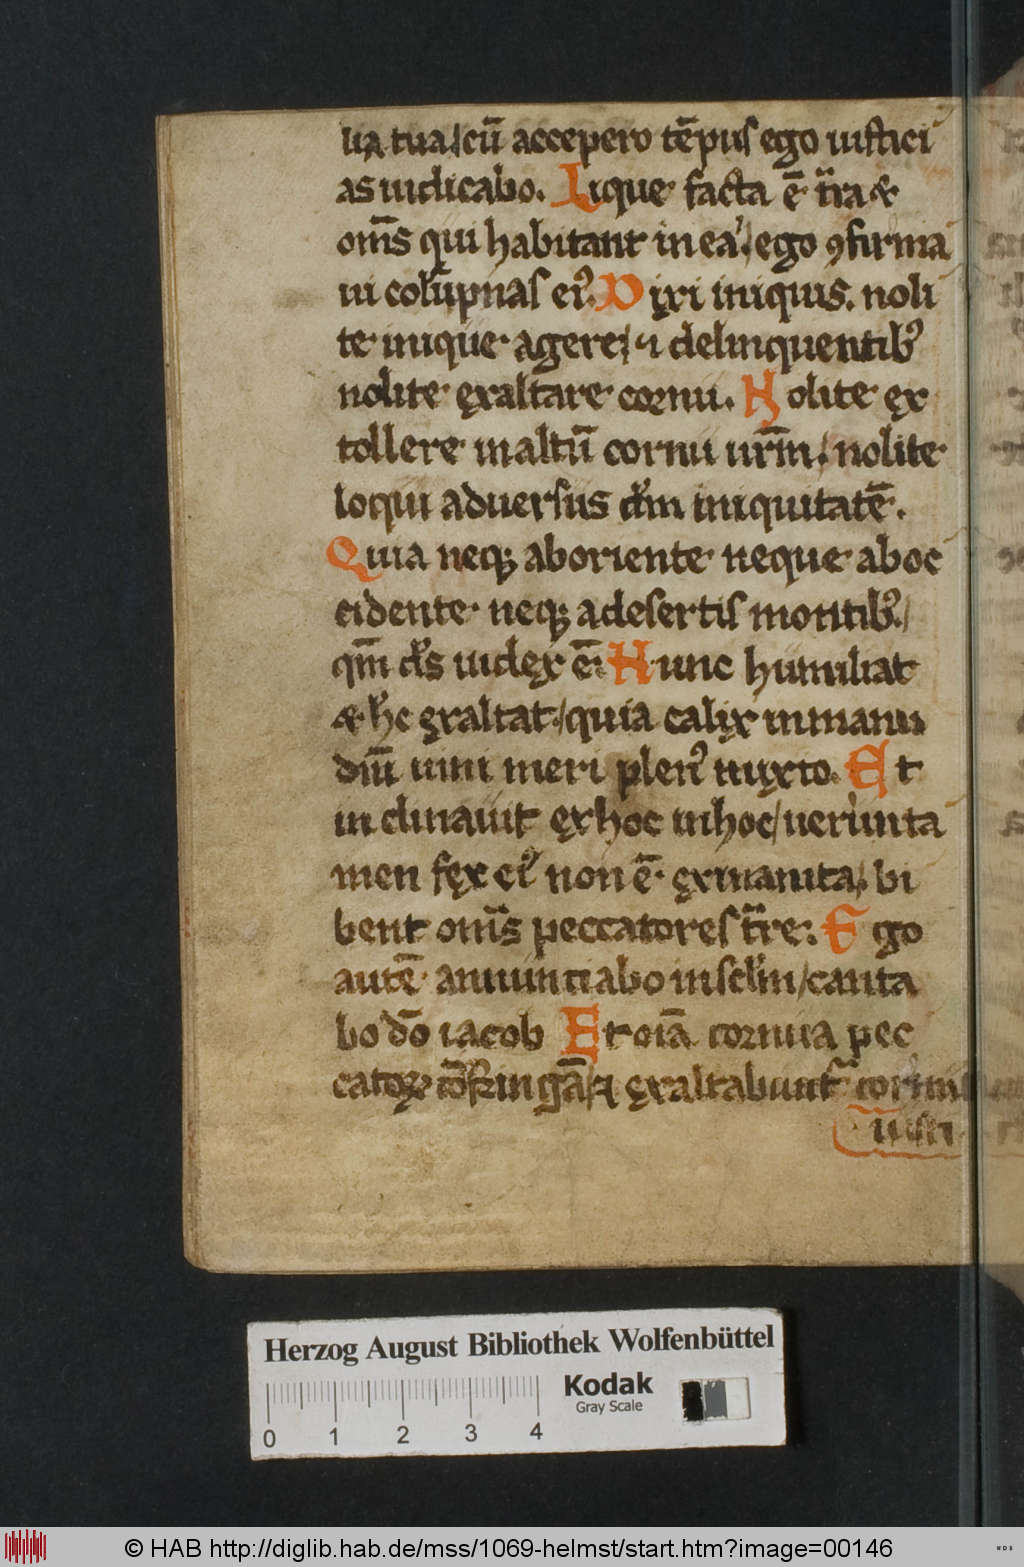 lia tua / cū accepero tēpus ego iustici
as iudicabo. Lique facta ē t̄ra &
om̄s qui habitant in ea / ego ꝯfirma
ui colūpnas eiꝰ. Dixi iniquis. noli
te inique agere / ⁊ delinquentibꝰ
nolite ęxaltare cornu. Nolite ęx
tollere in altū cornu ur̄m / nolite
loqui aduersus dm̄ iniquitatē.
Quia neqꝫ ab oriente neque ab oc
cidente neqꝫ a desertis montibꝰ /
qm̄ ds̄ iudęx ē. Hunc humiliat
& hc̄ ęxaltat / quia calix in manu
dn̄i uini meri plenꝰ mixto. Et
inclinauit ęx hoc in hoc / uerunta
men fęx eiꝰ non ē ęxinanita / bi
bent om̄s peccatores t̄re. Ego
autē annunciabo in sclm̄ / canta
bo dō iacob Et oīa cornua pec
catoꝝ cōfringā / ⁊ ęxaltabunt᷑ cornu
iusti
Herzog August Bibliothek Wolfenbüttel
Kodak
Gray Scale
0 1 2 3 4
© HAB http://diglib.hab.de/mss/1069-helmst/start.htm?image=00146